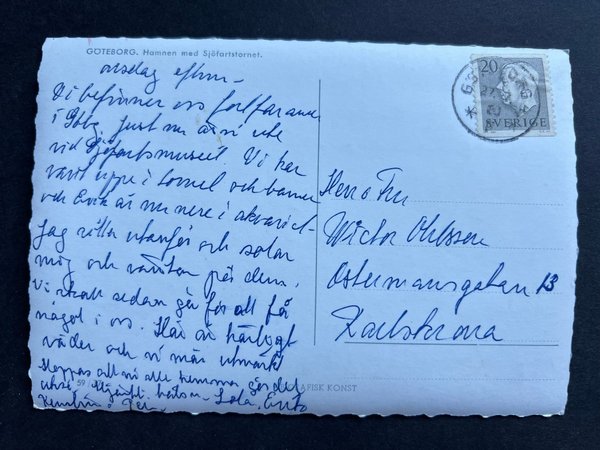 GÖTEBORG. Hamnen med Sjöfartstornet.
onsdag efterm -
Vi befinner oss fortfarande
i Gbg. Just nu är vi ute
vid Sjöfartsmuseet. Vi har
varit uppe i tornet och barnen
och Erik är nu nere i akvariet -
Jag sitter utanför och solar
mig och väntar på dem.
Vi skall sedan gå för att få
något i oss. Här är härligt
väder och vi mår utmärkt
Hoppas att ni alle hemma gör det
också. Hjärtl. hälsn.
59
AFISK KONST
20
SVERIGE
27
Herr o Fru
Victor Ohlsson
Östermansgatan 13
Karlskrona